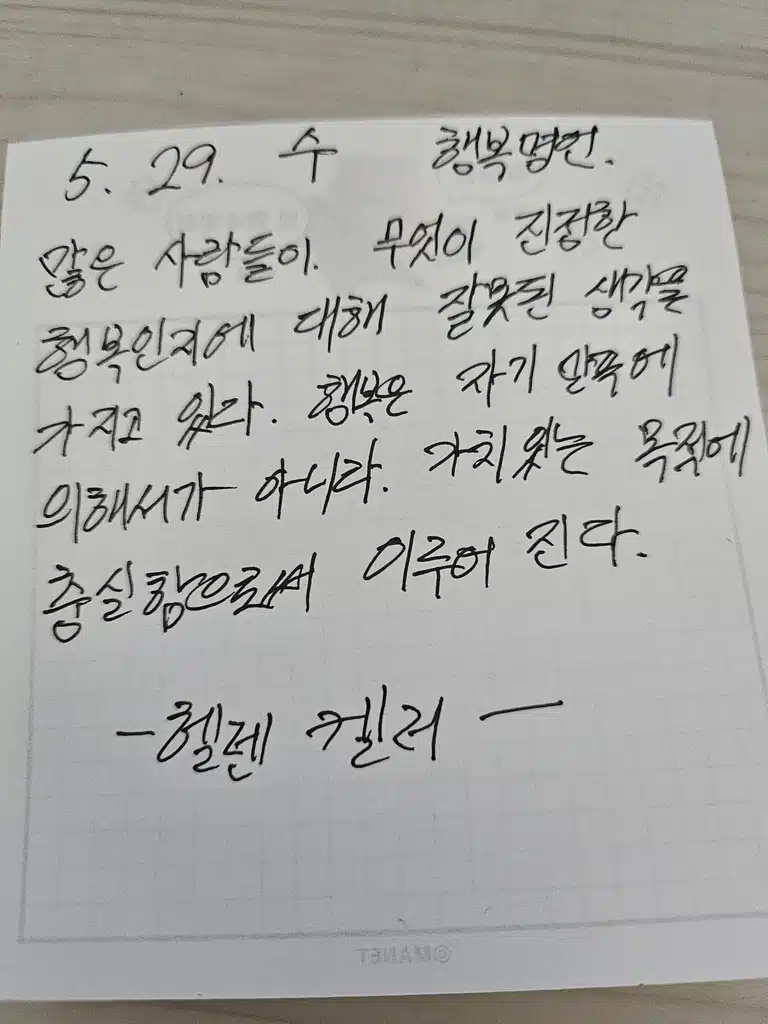 5. 29. 수 행복명언.
많은 사람들이. 무엇이 진정한
행복인지에 대해 잘못된 생각을
가지고 있다. 행복은 자기 만족에
의해서가 아니라. 가치있는 목적에
충실함으로써 이루어 진다.
-헬렌 켈러-
©MANET